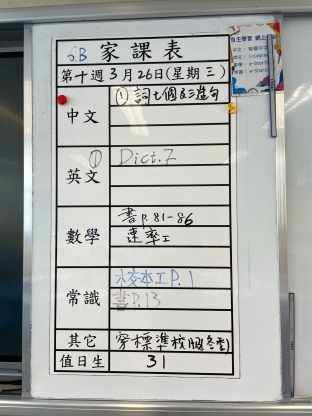 6B 家課表
第十週3月26日(星期三)
中文 ①詞七個及三造句
英文 ① Dict.7
數學 書p.81-86
速率工
常識 校本工P.1
書P.13
其它 穿標準校服(冬季)
值日生 31
自主學習 網上